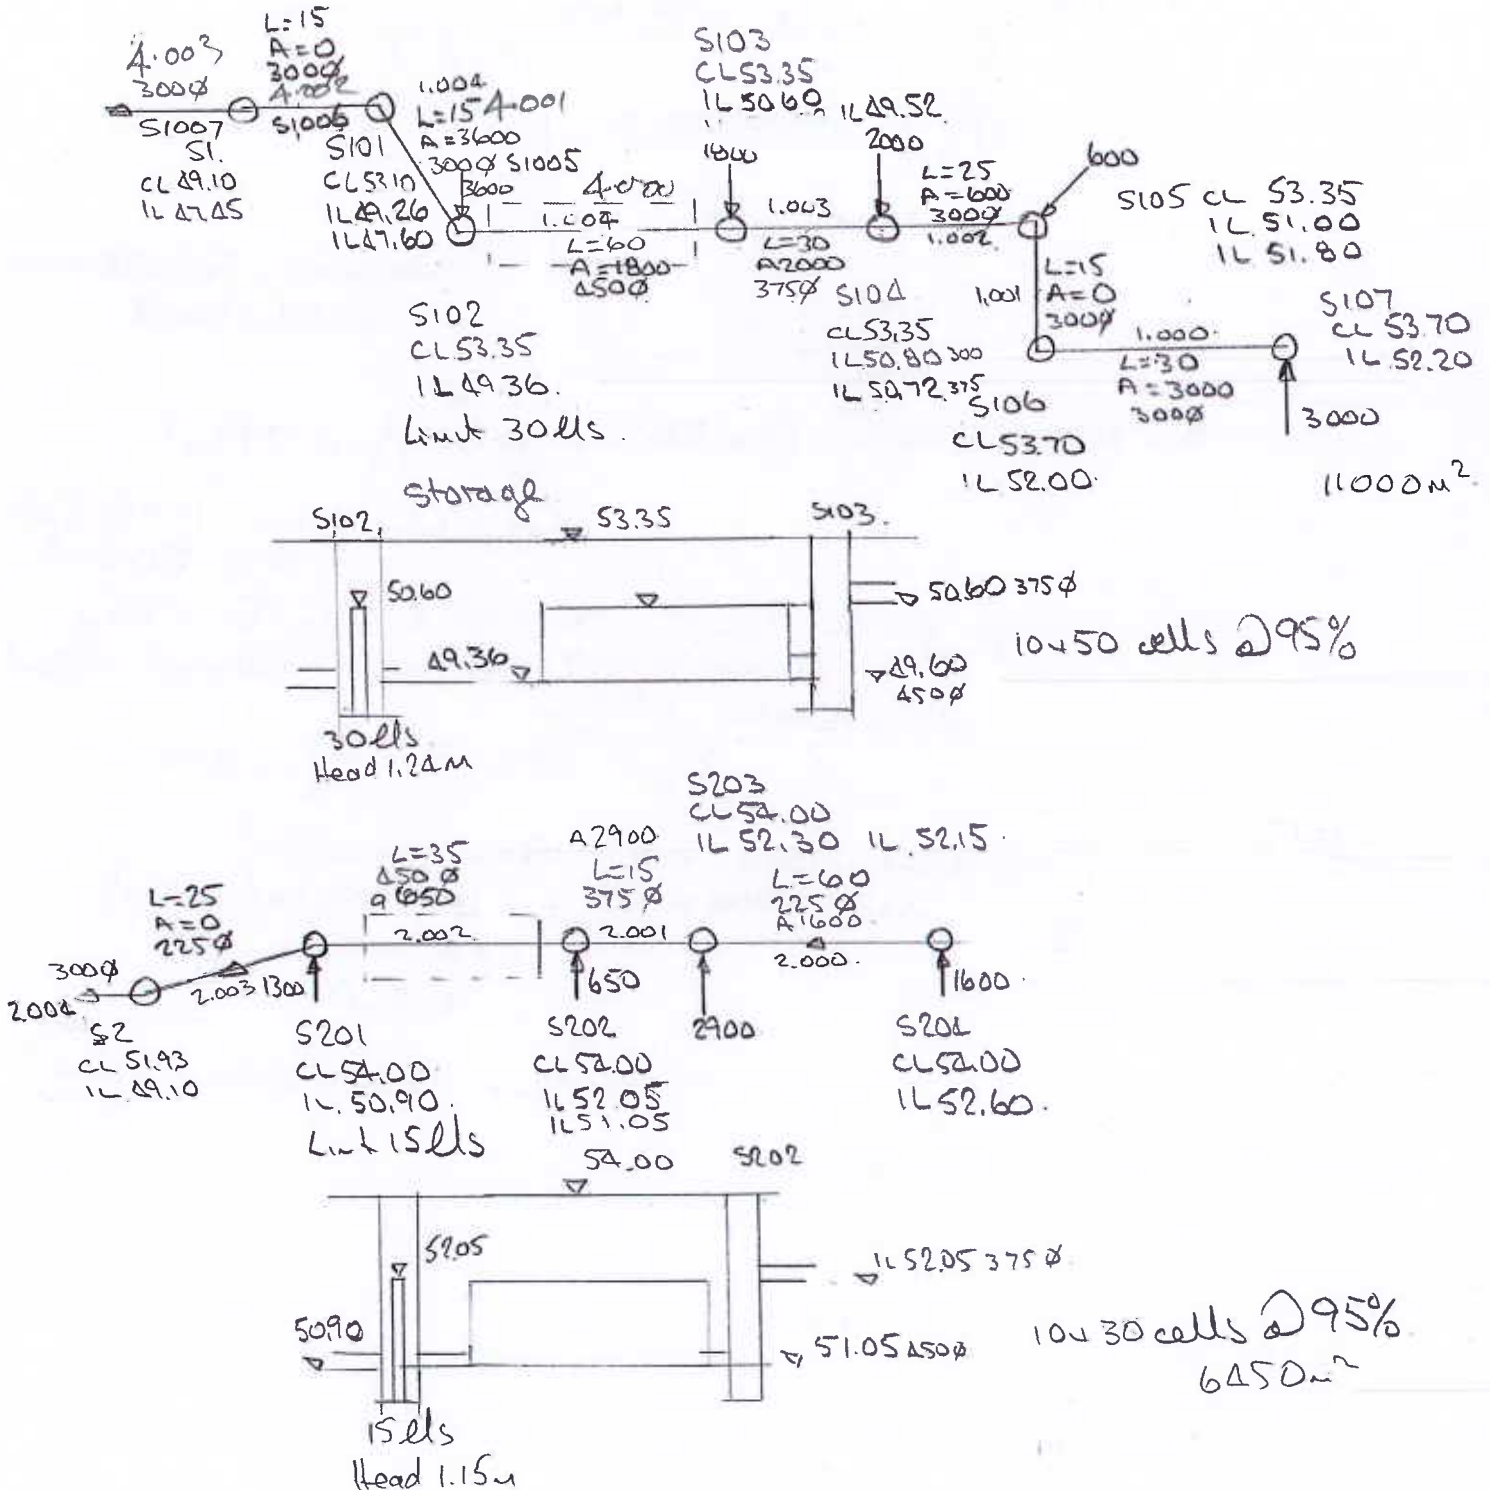 4.003
300Ø
S1007
S1.
CL 49.10
IL 47.45
L=15
A=0
300Ø
4.002
S1006
S101
CL 53.10
IL 49.26
IL 47.60
1.004
L=15 4.001
A=3600
300Ø S1005
3600
4.000
1.004
L=60
A=1800
450Ø
S102
CL 53.35
IL 49.36.
Limit 30l/s.
S103
CL 53.35
IL 50.60
IL 49.52
1800
2000
1.003
L=30
A2000
375Ø
S104
CL 53.35
IL 50.80 300
IL 50.72 375
L=25
A=600
300Ø
1.002.
600
S105 CL 53.35
IL 51.00
IL 51.80
1.001
L=15
A=0
300Ø
1.000.
L=30
A=3000
300Ø
S106
CL 53.70
IL 52.00.
S107
CL 53.70
IL 52.20
3000
11000m²
storage
S102
53.35
S103.
50.60
50.60 375Ø
49.36
49.60
450Ø
10x50 cells @ 95%
30l/s.
Head 1.24m
300Ø
2.004
S2
CL 51.93
IL 49.10
L=25
A=0
225Ø
2.003
1300
S201
CL 54.00
IL 50.90.
Limit 15l/s
L=35
450Ø
a 650
2.002.
A2900
L=15
375Ø
2.001
650
S202
CL 54.00
IL 52.05
IL 51.05
S203
CL 54.00
IL 52.30 IL 52.15.
2900
L=60
225Ø
A1600
2.000.
1600.
S204
CL 54.00
IL 52.60.
54.00
S202
52.05
IL 52.05 375Ø
50.90
51.05 450Ø
10x30 cells @ 95%
6450m²
15l/s
Head 1.15m